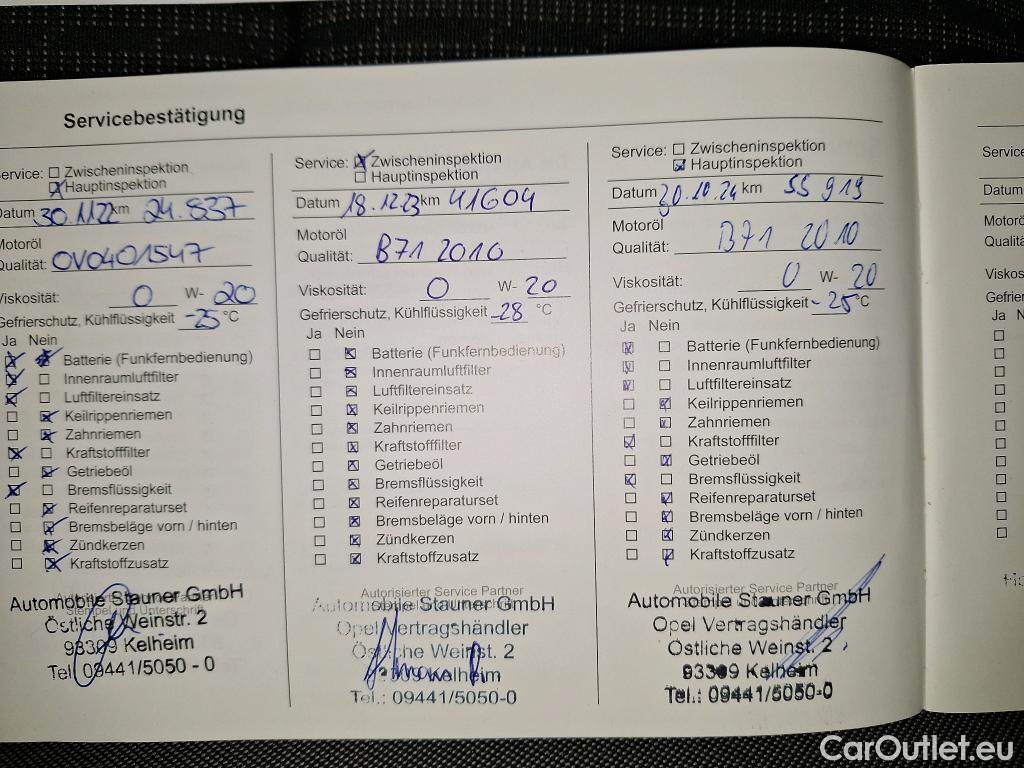 Servicebestätigung
ervice: Zwischeninspektion
Hauptinspektion
Datum 30.11.22 km 24.837
Motoröl
Qualität: OV0401547
Viskosität: 0 W- 20
Gefrierschutz, Kühlflüssigkeit -25 °C
Ja Nein
Batterie (Funkfernbedienung)
Innenraumluftfilter
Luftfiltereinsatz
Keilrippenriemen
Zahnriemen
Kraftstofffilter
Getriebeöl
Bremsflüssigkeit
Reifenreparaturset
Bremsbeläge vorn / hinten
Zündkerzen
Kraftstoffzusatz
Automobile Stauner GmbH
Östliche Weinstr. 2
93309 Kelheim
Tel 09441/5050 - 0
Service: Zwischeninspektion
Hauptinspektion
Datum 18.12.23 km 41604
Motoröl
Qualität: B71 2010
Viskosität: 0 W- 20
Gefrierschutz, Kühlflüssigkeit -28 °C
Ja Nein
Batterie (Funkfernbedienung)
Innenraumluftfilter
Luftfiltereinsatz
Keilrippenriemen
Zahnriemen
Kraftstofffilter
Getriebeöl
Bremsflüssigkeit
Reifenreparaturset
Bremsbeläge vorn / hinten
Zündkerzen
Kraftstoffzusatz
Autorisierter Service Partner
Automobile Stauner GmbH
Opel Vertragshändler
Östliche Weinst. 2
Kelheim
Tel.: 09441/5050-0
Service: Zwischeninspektion
Hauptinspektion
Datum 30.10.24 km 55 919
Motoröl
Qualität: B71 2010
Viskosität: 0 W- 20
Gefrierschutz, Kühlflüssigkeit -25 °C
Ja Nein
Batterie (Funkfernbedienung)
Innenraumluftfilter
Luftfiltereinsatz
Keilrippenriemen
Zahnriemen
Kraftstofffilter
Getriebeöl
Bremsflüssigkeit
Reifenreparaturset
Bremsbeläge vorn / hinten
Zündkerzen
Kraftstoffzusatz
Autorisierter Service Partner
Automobile Stauner GmbH
Opel Vertragshändler
Östliche Weinst. 2
93309 Kelheim
Tel.: 09441/5050-0
Service
Datum
Motorö
Qualitä
Viskos
Gefrier
Ja N
CarOutlet.eu